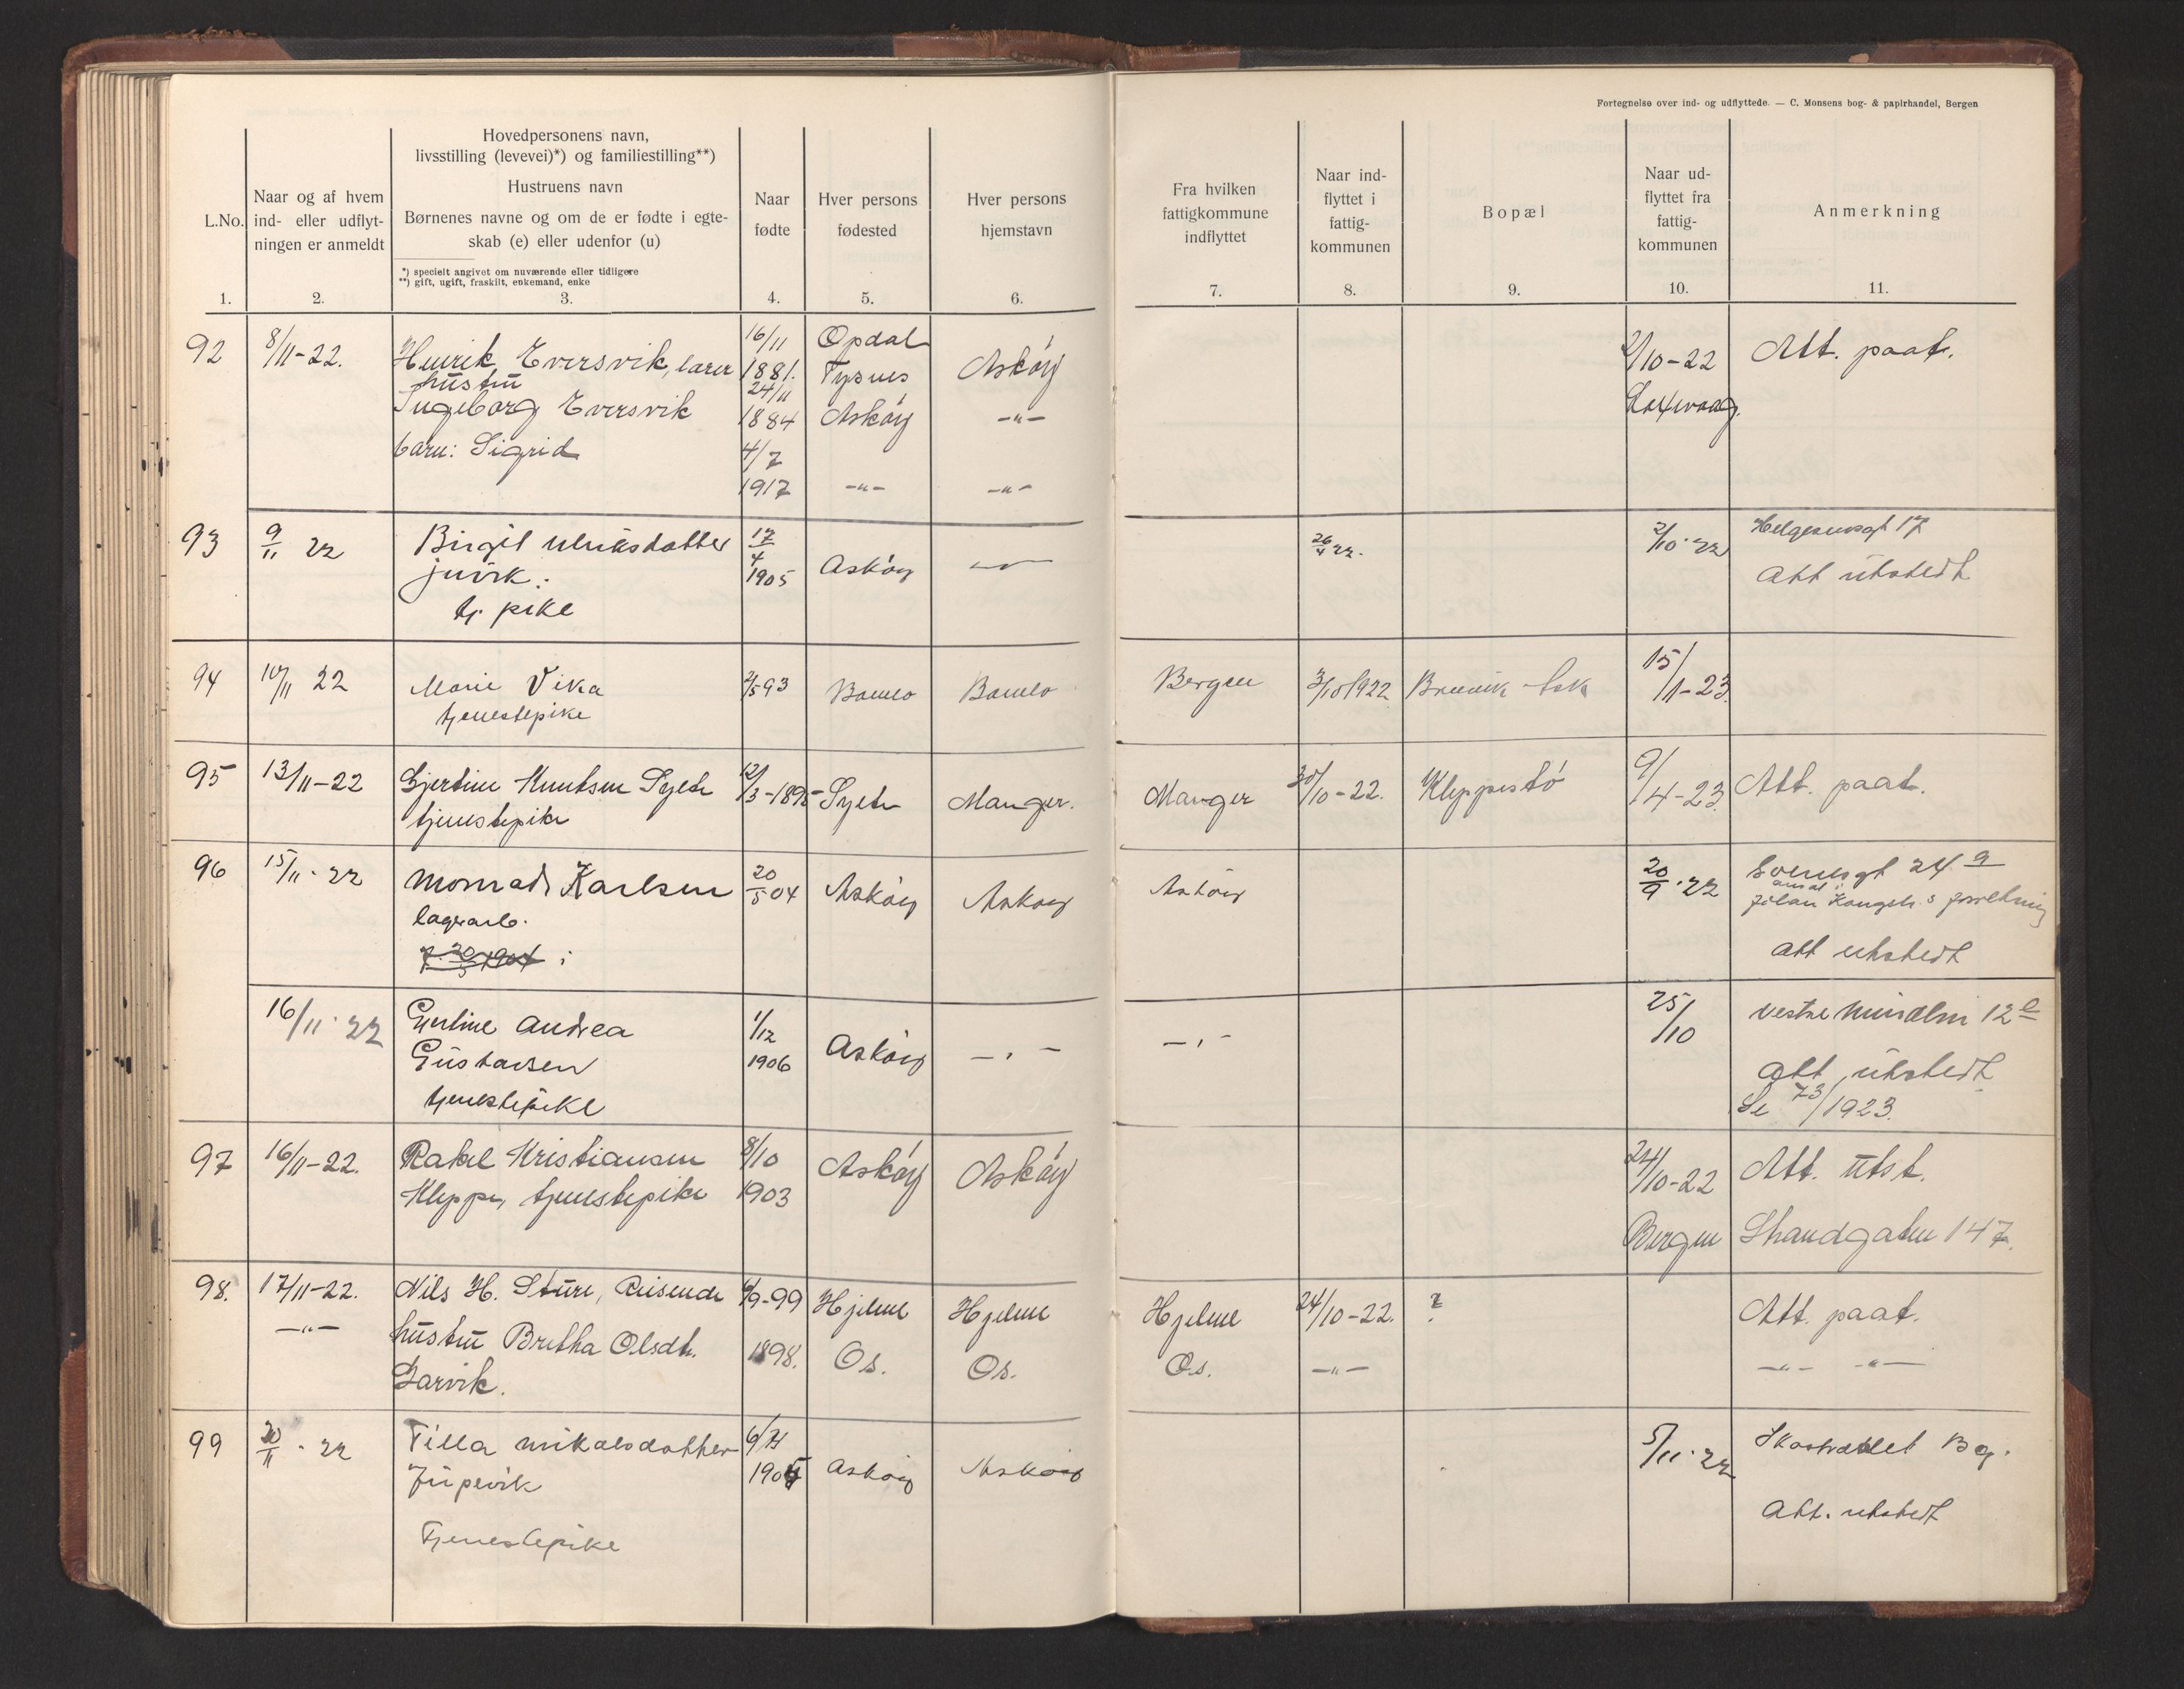 Fortegnelse over ind- og udflyttede. — C. Monsens bog- & papirhandel, Bergen
L.No.
Naar og af hvem
ind- eller udflyt-
ningen er anmeldt
Hovedpersonens navn,
livsstilling (levevei)*) og familiestilling**)
Hustruens navn
Børnenes navne og om de er fødte i egte-
skab (e) eller udenfor (u)
*) specielt angivet om nuværende eller tidligere
**) gift, ugift, fraskilt, enkemand, enke
Naar
fødte
Hver persons
fødested
Hver persons
hjemstavn
Fra hvilken
fattigkommune
indflyttet
Naar ind-
flyttet i
fattig-
kommunen
Bopæl
Naar ud-
flyttet fra
fattig-
kommunen
Anmerkning
1. 2. 3. 4. 5. 6. 7. 8. 9. 10. 11.
92 8/11-22. Henrik Eversvik, lærer 16/11 1881. Opdal Tysnes Askøy 2/10-22 Att. paat.
hustru
Ingeborg Eversvik 24/11 1884 Askøy -"- Laxevaag.
barn: Sigrid 4/7 1917 -"- -"-
93 9/11 22 Birgit Ulriksdatter 17/4 1905 Askøy 26/4 22. 2/10-22 Helgesensgt 17
Juvik. Att utstedt
tj. pike
94 10/11 22 Marie Vika 2/5 93 Bømlo Bømlo Bergen 3/10 1922 15/1-23.
tjenestepike
95 13/11-22 Gjertine Knutsen Sylta 12/3-1895 Manger. Manger 30/10-22. Kleppestø 9/4-23. Att. paat.
tjenestepike
96 15/11-22 Monrad Karlsen 20/5 04 Askøy Askøy Askøy 20/9-22 24 a
lagerarb. forretning
att utstedt
16/11-22 Gjertine Andrea 1/12 1906 Askøy -,- -,- 25/10 Vestre 12 e
Gustavsen Att utstedt
tjenestepike Se 73/1923.
97 16/11-22. Rakel Kristiansen 8/10 1903 Askøy Askøy 24/10-22 Att. utst.
Kleppe, tjenestepike Bergen Strandgaten 147.
98. 17/11-22. Nils H. Sture, Reisende 4/9-99 Hjelme Hjelme Hjelme 24/10-22. ? Att. paat.
-"- hustru Bretha Olsdt. 1898. Os. Os. Os. -"- -"- -"-
Darvik.
99 20/11-22 Tilla Mikalsdatter Askøy Askøy 5/11-22 Skostrædet Bg.
Jupevik Att. utstedt
Tjenestepike